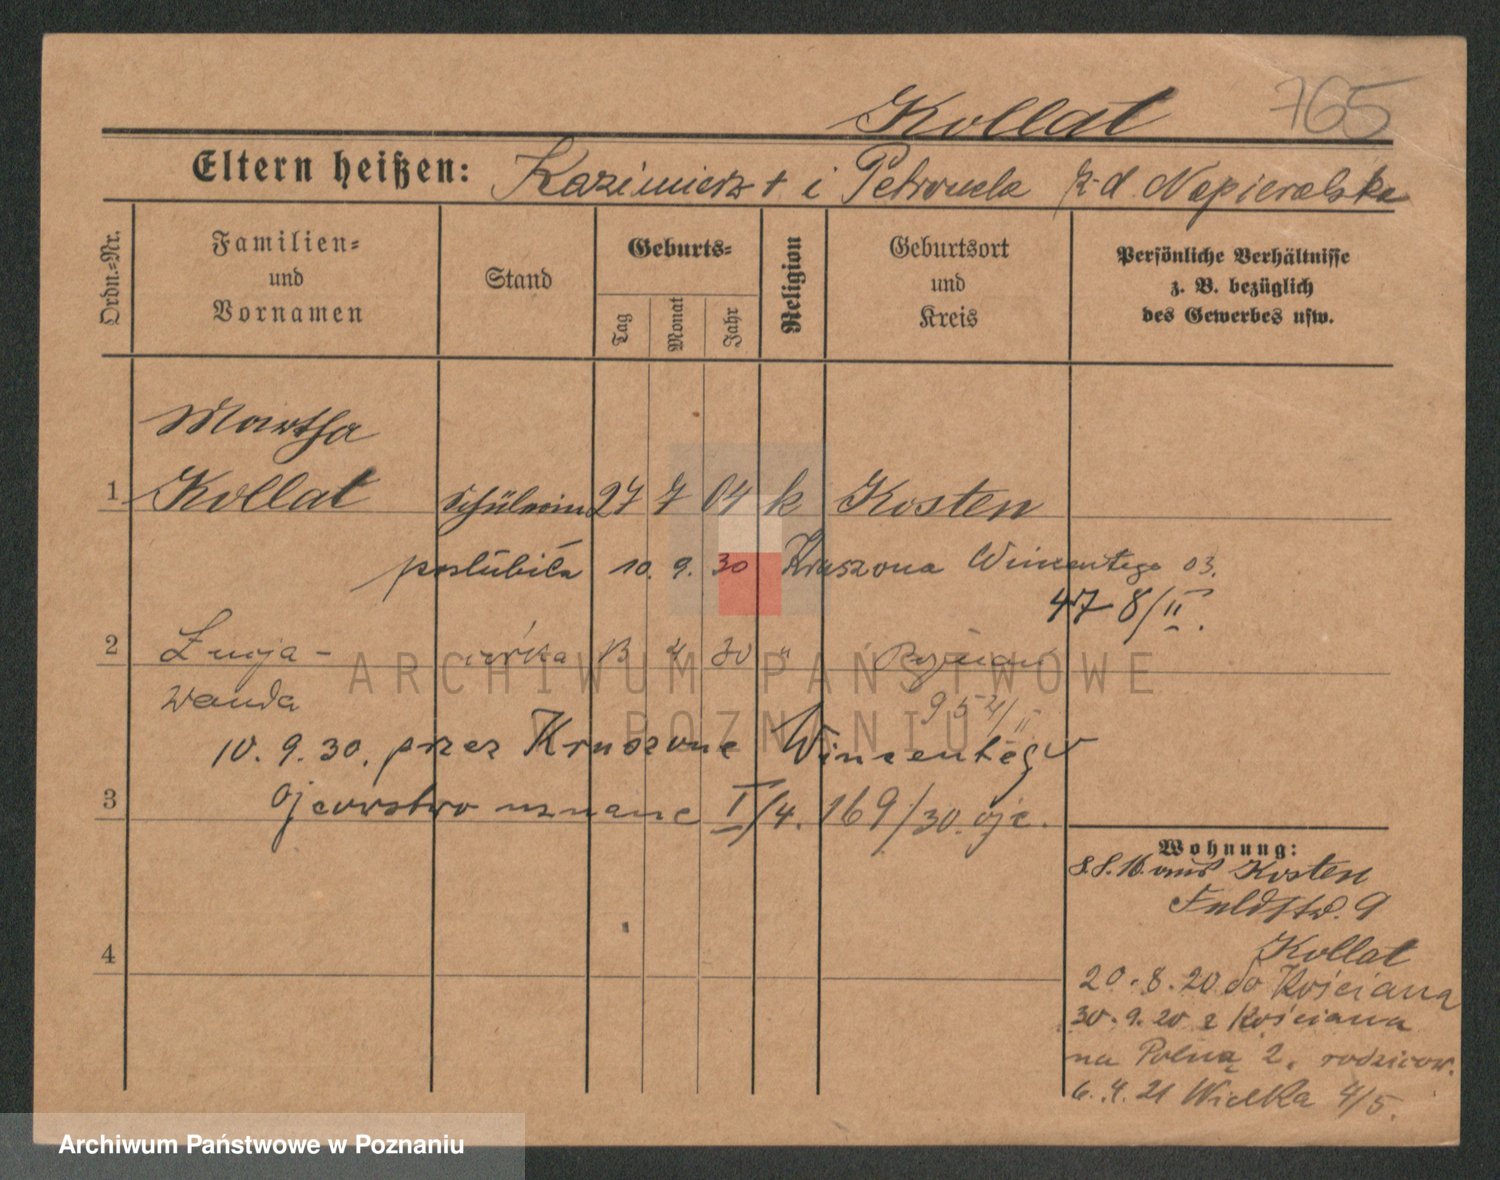 765
Kollat
Eltern heißen: Kazimierz + i Petronela z d. Napieralska
Ordn.=Nr.
Familien=
und
Vornamen
Stand
Geburts=
Tag
Monat
Jahr
Religion
Geburtsort
und
Kreis
Persönliche Verhältnisse
z. B. bezüglich
des Gewerbes usw.
Martha
1 Kollat Schülerin 27 7 04 k Kosten
poślubiła 10. 9. 30 Kruszona Wincentego 03.
47 8/II.
2 córka 13 4 30 "
Wanda
954/II
10. 9. 30. przez Kruszonę Wincentego
3 ojcowstwo uznane I/4. 169/30. ojc.
4
Wohnung:
8.8.16. aus Kosten
Feldstr. 9
Kollat
20. 8. 20 do Kościana
30. 9. 20 z Kościana
na Polną 2, rodzicow.
6. 4. 21 Wielka 4/5.
ARCHIWUM PAŃSTWOWE
W POZNANIU
Archiwum Państwowe w Poznaniu